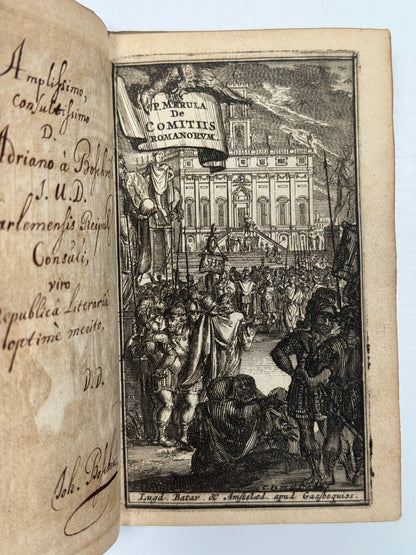 Amplissimo,
Consultissimo
D.
Adriano à
J. U. D.
Consuli,
viro
Republicâ Literariâ
optimè merito,
D. D.
Joh.
P. MERULA
De
COMITIIS
ROMANORUM.
Lugd. Batav. & Amstelæd. apud Gaasbequios.